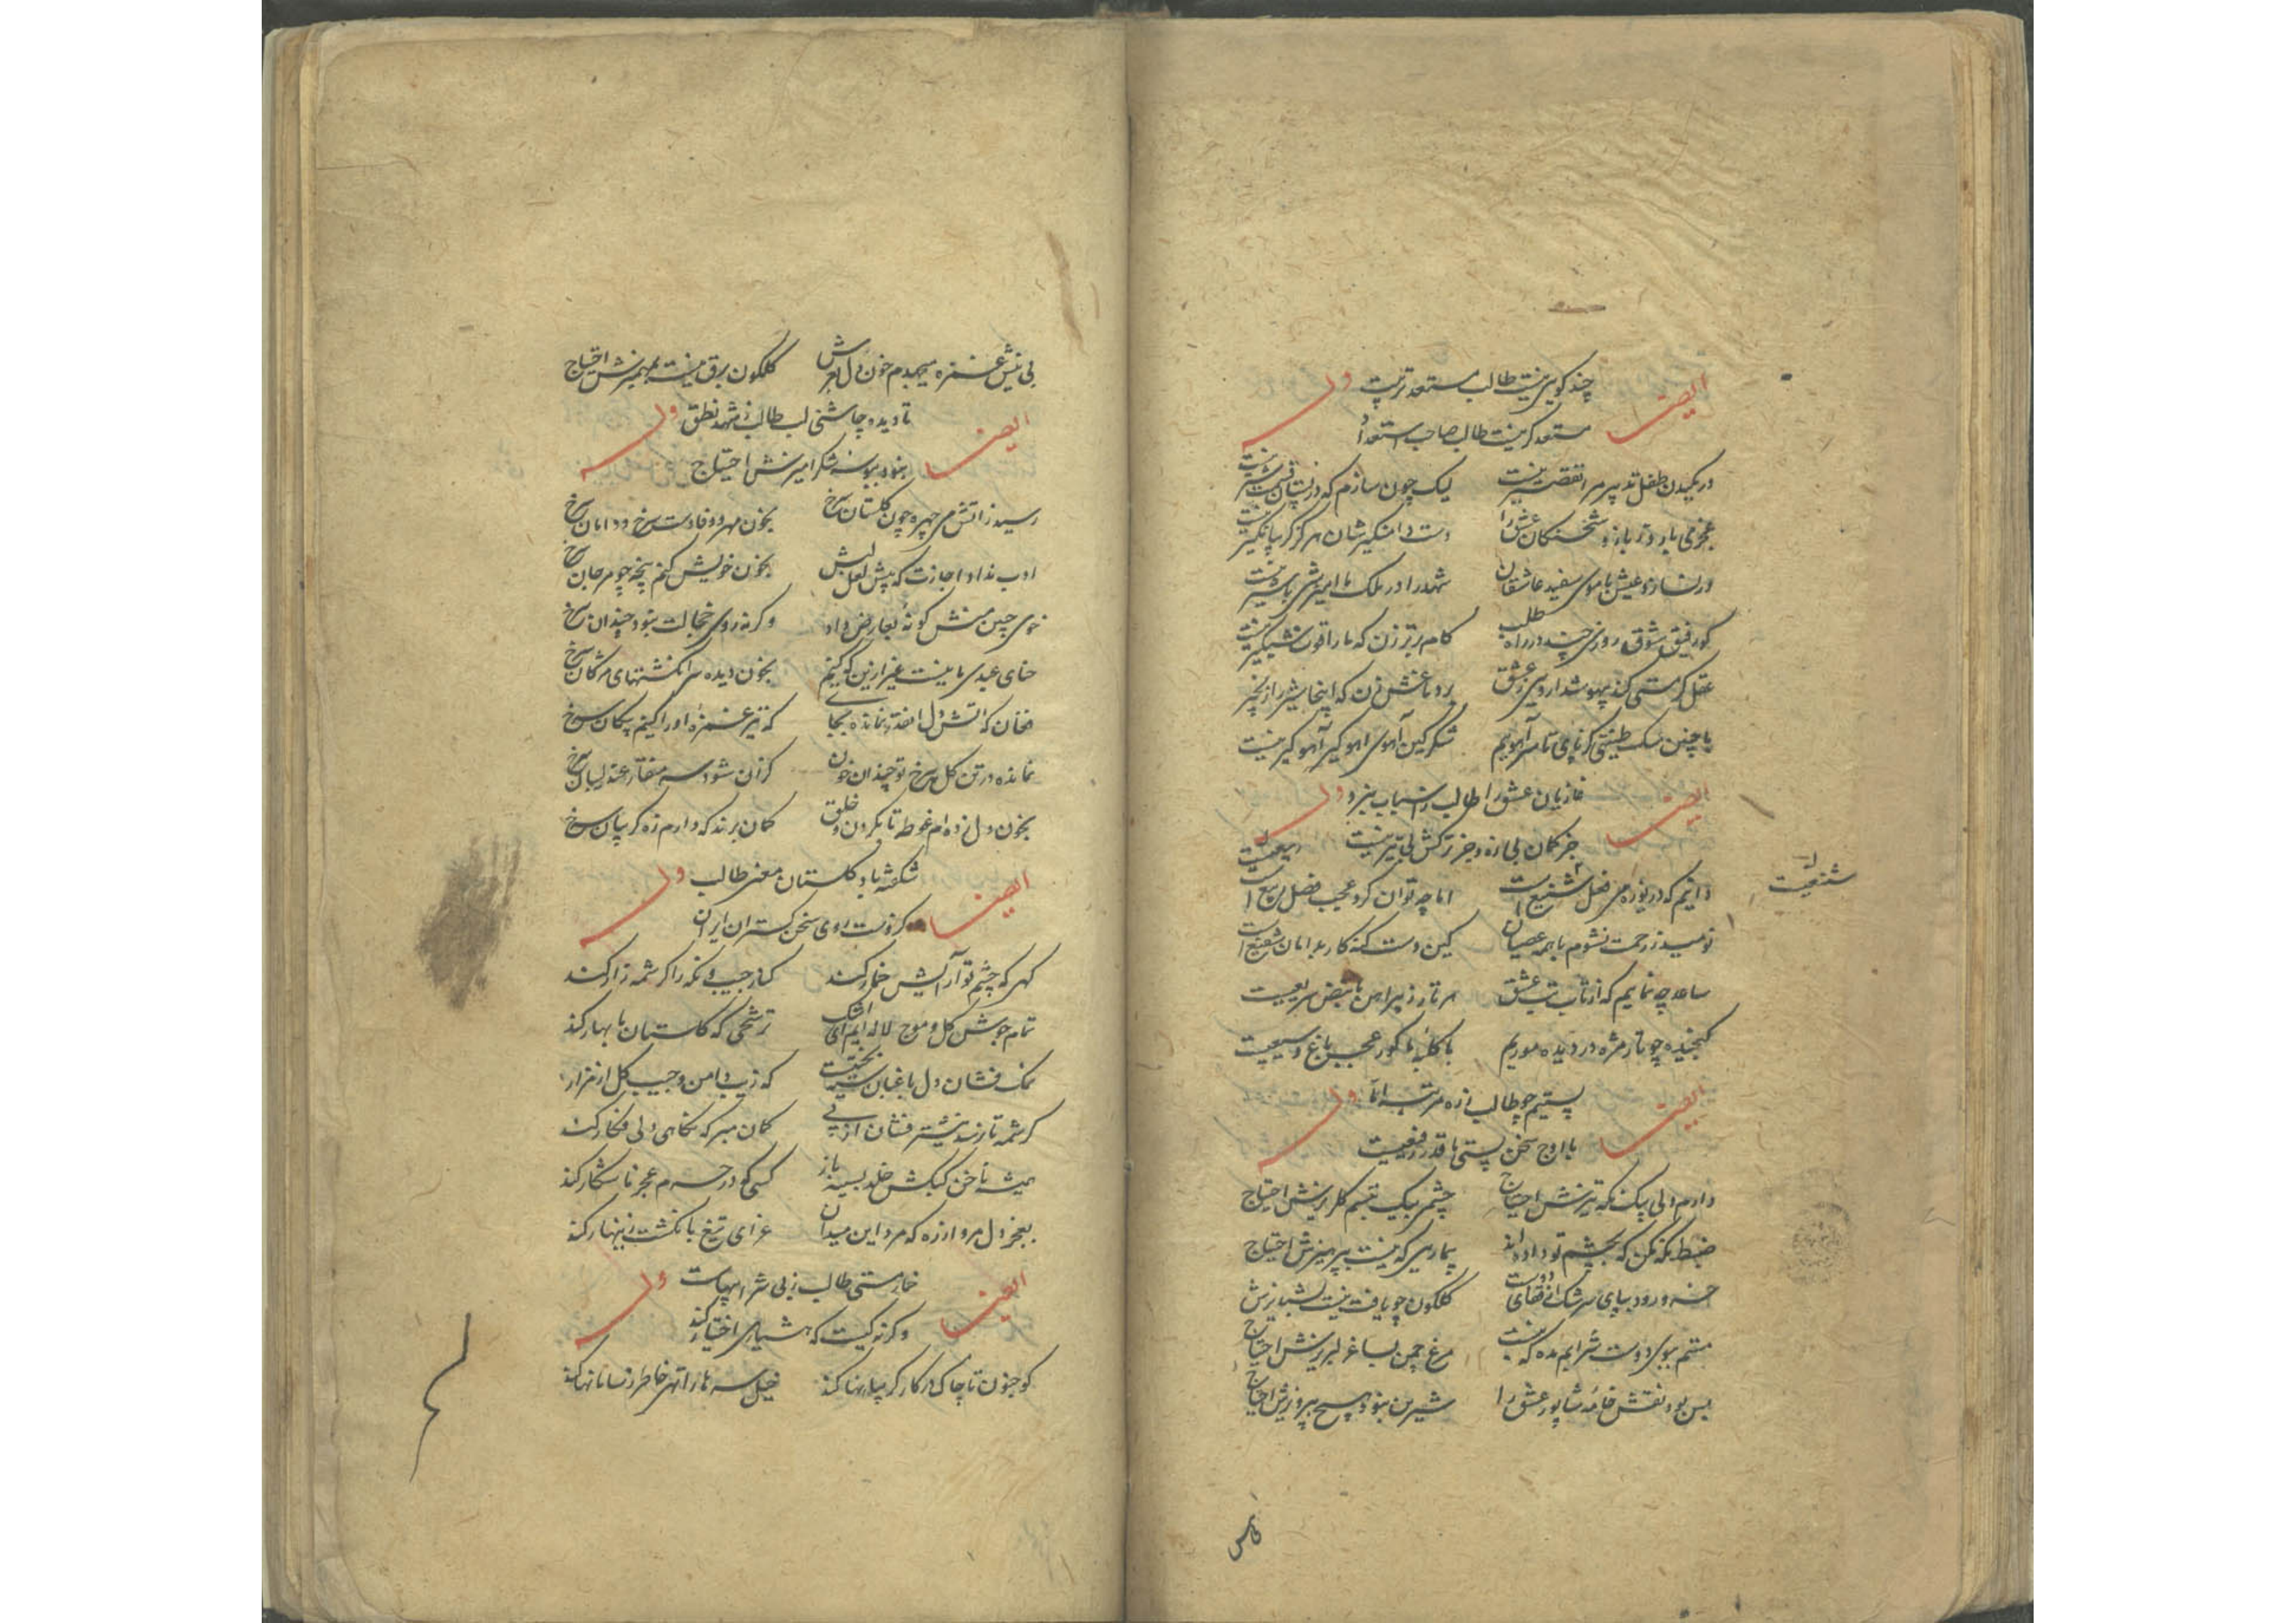 چند گویی نیست طالب مستعد تربیت
وله ایضاً
مستعد گر نیست طالب صاحب استعداد
در مکیدن طفل تدبیر مرا تقصیر نیست لیک چون سازم که در پستان قسمت شیر نیست
عجز می بارد ز بازو عشق را دست دامنگیرشان هرگز گریبانگیر نیست
ور نسازد عیش با موی سفید عاشقان شهد را در ملک ما آمیزشی با شیر نیست
کو رفیق شوق روزی چند در راه طلب گام برتر زن که ما را قوت شبگیر نیست
عقل گر مستی کند بیهوشدار وی ز عشق
با چنین سگ طینتی گر پای تا سر آهویم شکر کین آهوی آهوگیر نیست
غازیان عشق را طالب ز اسباب نبرد
وله ایضاً
جز کمان بی زه و جز ترکش بی تیر نیست
دانیم که دریوزه می فعل شنیع است اما چه توان کرد عجب فصل ربیع است
شنیعست
نومید ز رحمت نشوم با همه عصیان کین دست گنه کار بدامان شفیع است
ساعد چه نمایم که از تاب تب عشق هر تار ز پیراهن ما نبض سریعیست
گنجیده چو تار مژه در دیده موریم با کلبه ما گور عجب باغ وسیعیست
پستیم چو طالب ز ره مرتبه اما
وله ایضاً
با اوج سخن پستی ما قدر رفیعیست
دارم دلی بیک نگه تیزش احتیاج چشمی بیک تبسم گلریزش احتیاج
ضبط نگه مکن که بچشم تو داده اند بیماریی که نیست بپرهیزش احتیاج
خسرو رود بپای سرشک از قفای دوست گلگون چو یافت نیست بشبدیزش
مستم ببوی دوست شرابم مده که نیست مرغ چمن بساغر لبریزش احتیاج
بس بود نقش خامه شاپور عشق را شیرین نبود هیچ بپرویزش احتیاج
بی نیش غمزه میجهدم خون دل گلگون برق نیست بمهمیزش احتیاج
تا دیده چاشنی لب طالب ز شهد نطق
وله ایضاً
نبود ببوسه شکرآمیزش احتیاج
رسید ز آتش می چهره چون گلستان سرخ بخون مهر و وفا دست سرخ و دامان سرخ
ادب نداد اجازت که پیش لعل لبش بخون خویش کنم پنجه چو مرجان سرخ
خوی جبین منش گونه بعارض داد وگرنه روی خجالت نبود چندان سرخ
حنای عیدی ما نیست غیر ازین که کنیم بخون دیده سر انگشتهای مژگان سرخ
فغان که آتش دل نمانده بجای که تیر غمزه او را کنیم پیکان سرخ
نمانده در تن گل سرخ تو چندان خون کزان شود سر منقار عندلیبان سرخ
بخون دل زده ام غوطه تا بگردن و خلق گمان برند که دارم زه گریبان سرخ
شکفته باد گلستان معنی طالب
وله ایضاً
کزوست روی سخن گستران ایران
گهی که چشم تو آرایش خمار کند کنار جیب نگه را کرشمه زار کند
تمام جوش گل و موج لاله ایم ای اشک ترشحی که گلستان ما بهار کند
نمک فشان دل باغبان که زیب دامن و جیب گل از هزار
کرشمه تا زند نیشتر فشان از پی گمان مبر که نگاهی دلی فگار کند
همیشه ناخن کبکش خلد بسینه باز کسی که در حرم عجز ما شکار کند
بعجز دل مرو از ره که مرد این میدان غزای تیغ بانگشت زینهار کند
خمار مستی طالب ز بی شرابیهاست
وله ایضاً
وگرنه کیست که هشیاری اختیار کند
کو جنون تا چاک در کار گریبانها کند خیل سر